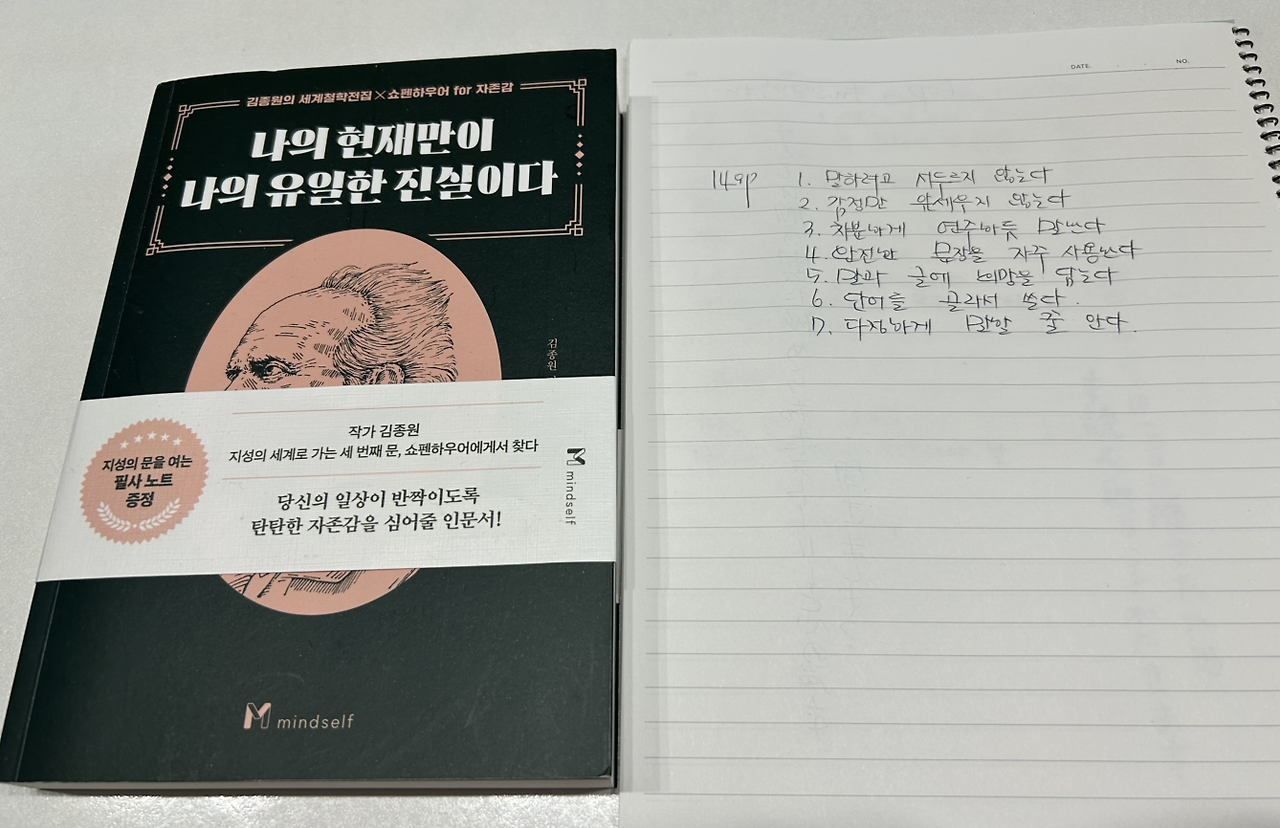 김종원의 세계철학전집 × 쇼펜하우어 for 자존감
나의 현재만이
나의 유일한 진실이다
김종원
지성의 문을 여는
필사 노트
증정
작가 김종원
지성의 세계로 가는 세 번째 문, 쇼펜하우어에게서 찾다
당신의 일상이 반짝이도록
탄탄한 자존감을 심어줄 인문서!
M mindself
M mindself
DATE. NO.
149p 1. 말하려고 서두르지 않는다
2. 감정만 앞세우지 않는다
3. 차분하게 연주하듯 말한다
4. 완전한 문장을 자주 사용한다
5. 말과 글에 희망을 담는다
6. 단어를 골라서 쓴다.
7. 다정하게 말할 줄 안다.